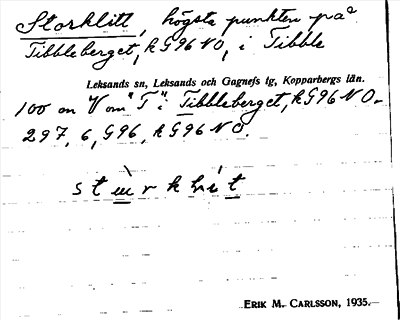 Storklitt, högsta punkten på
Tibbleberget, k G96 NO, i Tibble
Leksands sn, Leksands och Gagnefs lg, Kopparbergs län.
100 m V om "T" i Tibbleberget, k G96 NO -
297, 6, G96, k G96 NO.
ERIK M. CARLSSON, 1935.—